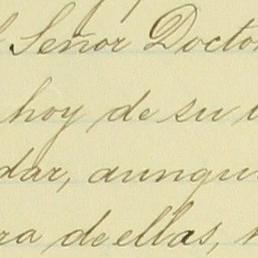 Señor Doctor
hoy de su
dar, aunque
ra de ellas,